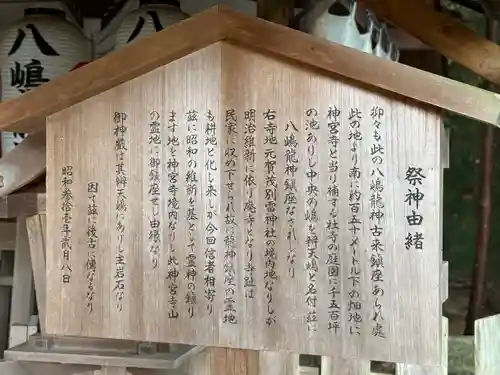 祭神由緒
抑々も此の八嶋龍神古来鎮座あられ處
此の地より南に約百五十メートル下の畑地に
神宮寺と当り補する社寺の庭園に千五百坪
の池ありし中央の嶋を辨天嶋と名付茲に
八嶋龍神鎮座なされしなり
右寺地元賀茂別雷神社の境内地なりしが
明治維新に依り廃寺となり寺趾は
民家に収め下せられ故に龍神鎮座の霊地
も耕地と化し来しが今回信者相寄り
茲に昭和の維新を基として霊神の鎮り
ます地を神宮寺境内なりし此神宮寺山
の霊地に御鎮座せし由縁なり
御神嚴は其辨天嶋にありし主岩石なり
因て茲に後古に傳なるなり
昭和参拾壱年貳月八日
八嶋
八嶋